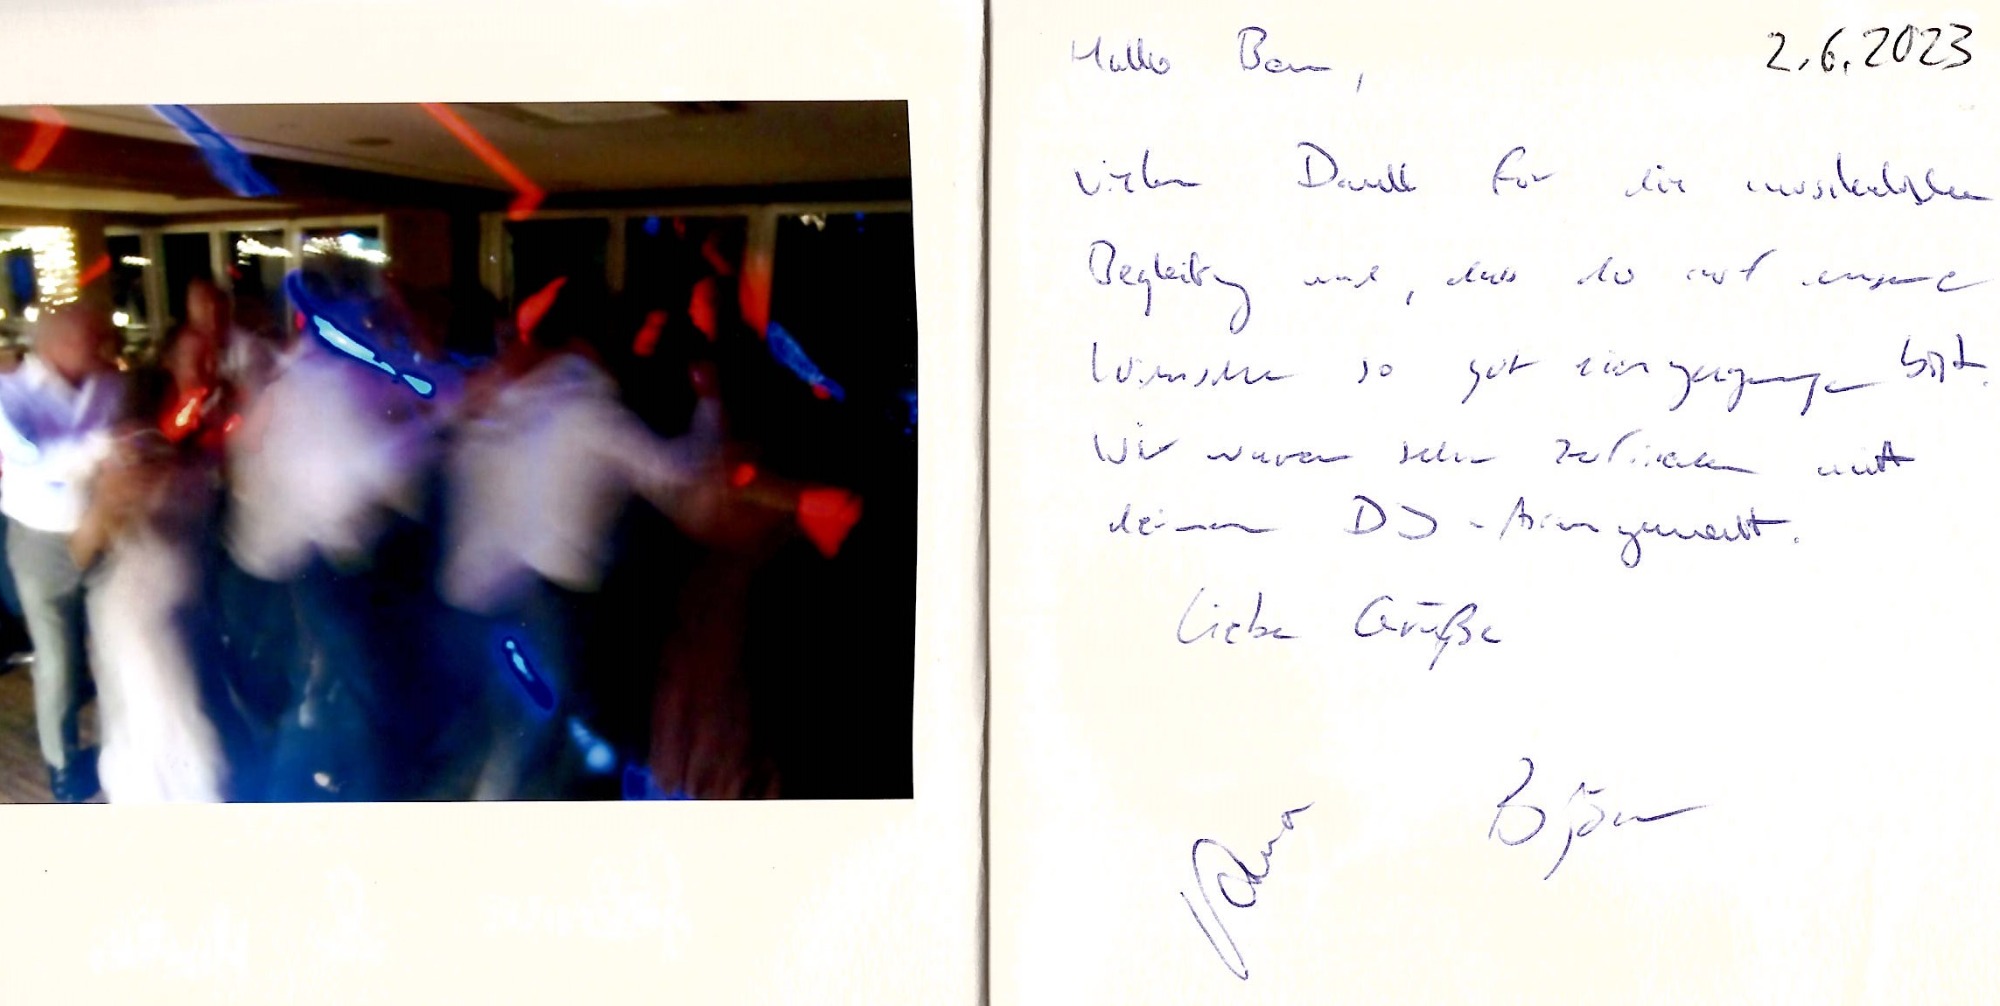 2.6.2023
Hallo
vielen Dank für die musikalische
Begleitung und, dass du auf unsere
Wünsche so gut eingegangen bist.
Wir waren sehr zufrieden mit
deinem DJ-Arrangement.
Liebe Grüße
Björn